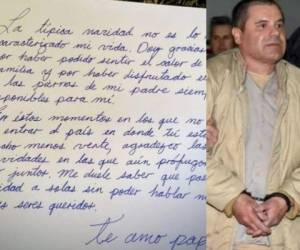 La típica navidad no es lo
caracterizado mi vida. Doy gracias
por haber podido sentir el calor de
familia y por haber disfrutado
las piernas de mi padre siem
ponibles para mi.
En éstos momentos en los que no
entrar al país en donde tú est
cho menos verte, agradezco las
vidades en las que aún prófugo
juntos. Me duele saber que pas
idad a solas sin poder hablar
s seres queridos.
Te amo pap